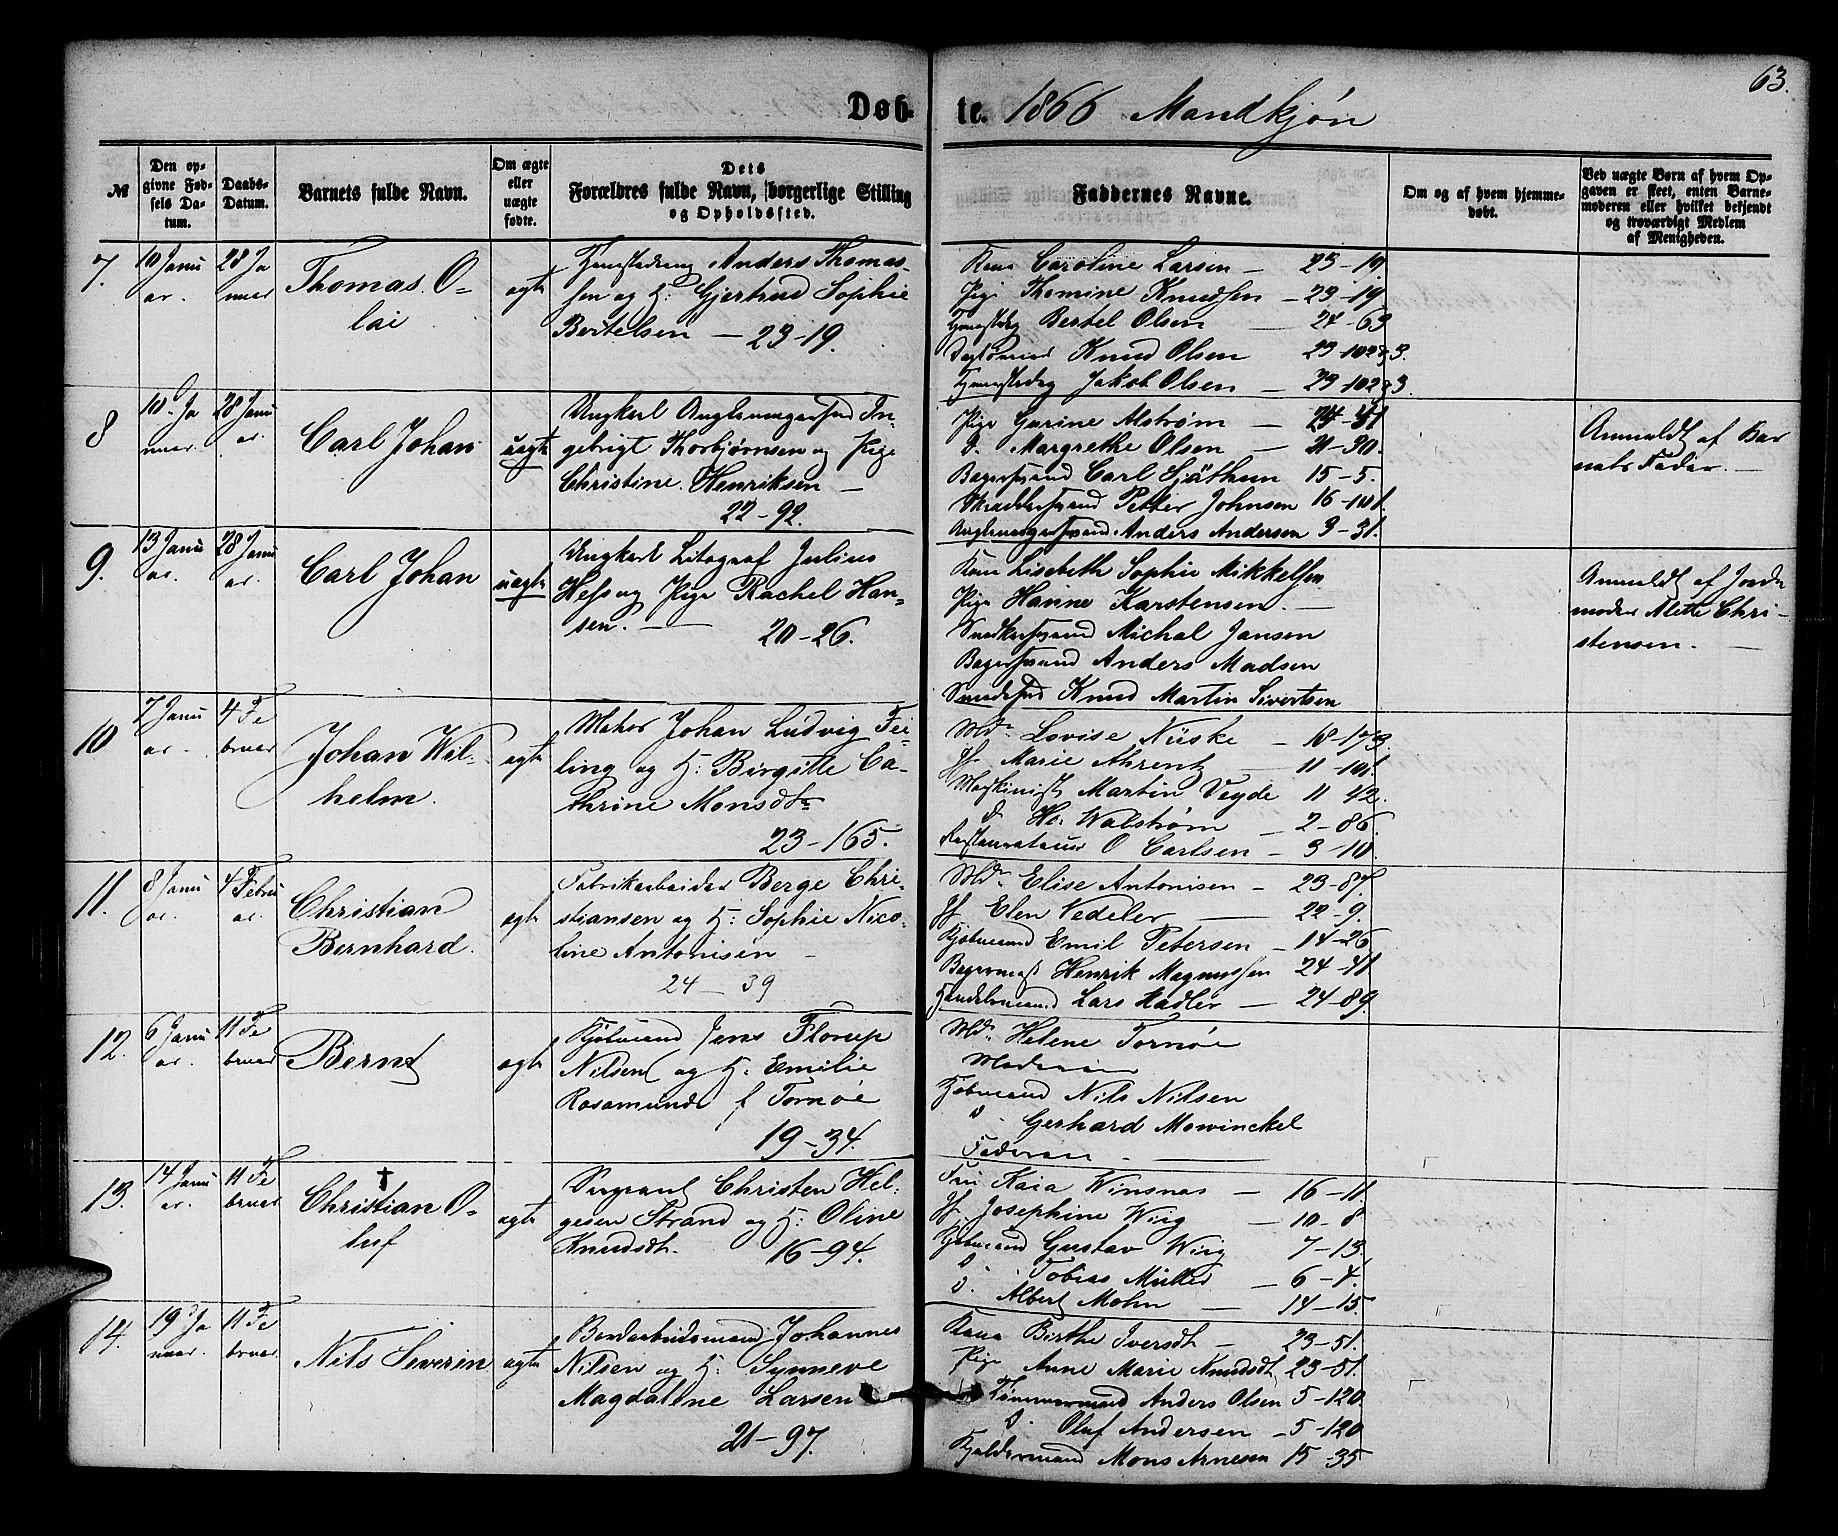 63.
Døb- te. 1866 Mandkjøn
№
Den op-
givne Fød-
sels Da-
tum.
Daabs-
Datum.
Barnets fulde Navn.
Om ægte
eller
uægte
fødte.
Dets
Forældres fulde Navn, borgerlige Stilling
og Opholdssted.
Faddernes Navne.
Om og af hvem hjemme-
døbt.
Ved uægte Børn af hvem Op-
gaven er skeet, enten Barne-
moderen eller hvilket bekjendt
og troværdigt Medlem
af Menigheden.
7.
10 Janu
ar.
28 Ja
nuar
Thomas O-
lai
ægte
Anders Thomas-
sen og H: Gjertrud Sophie
Bertelsen — 23-19.
Kone Caroline Larsen — 23-19
Pige Thomine Knudsen — 23-19.
Bertel Olsen — 24-63
Knud Olsen 23-102
Jakob Olsen — 23-102
8
10. Ja
nuar.
28 Janu
ar.
Carl Johan
uægte
Ungkarl In-
gebrigt Thorbjørnsen og Pige
Christine Henriksen —
22-92.
Pige Gurine Alstrøm —
d. Margrethe Olsen — 21-30.
Bagersvend Carl Sjäthun 15-5.
Skraddersvend Petter Johnsen 16-101.
Anders Andersen 3-31.
Anmeldt af Bar
nets Fader. —
9.
13 Janu
ar.
28 Janu
ar.
Carl Johan
uægte
Ungkarl Litograf Julius
Hess og Pige Rachel Han-
sen. — 20-26.
Kone Lisebeth Sophie Mikkelsen
Pige Hanne Karstensen. —
Snedkersvend Michal Jansen
Bagersvend Anders Madsen
Knud Martin Sivertsen
Anmeldt af Jorde
moder Mette Chri-
stensen. —
10
7 Janu
ar.
4 Fe
bruar
Johan Wil-
helm.
ægte
Johan Ludvig Fei-
ling og H: Birgitte Ca-
thrine Monsdtr
23-165.
Md. Lovise Nüske — 18-173
Jf. Marie Ahrentz — 11-101
Maskinist Martin Veyde 11-42.
d. Walstrøm — 2-86.
Restauratør O Carlsen — 3-10.
11.
8 Janu
ar.
4 Febru
ar.
Christian
Bernhard.
ægte
Fabrikarbeider Berge Chri-
stiansen og H: Sophie Nico-
line Antonisen —
24 — 39
Md. Elise Antonisen — 23-87.
Jf Elen Vedeler — 22-9.
Kjøbmand Emil Petersen — 14-26
Bagermest Henrik Magnussen 24-41
Handelsmand Lars — 24-89.
12.
6 Janu
ar.
11 Fe
bruar
Bernt
ægte
Kjøbmand Jens Florup
Nilsen og H. Emilie
Rosamunde f Tornøe
19-34.
Md. Helene Tornøe
Moderen
Kjøbmand Nils Nilsen
d Gerhard Mowinckel
Faderen —
13.
14 Janu
ar.
11 Fe
bruar
†
Christian O-
luf
ægte
Sergeant Christen Hel-
gesen Strand og H: Oline
Knudsdt. 16-94.
Fru Kaia Winsnes — 16-11.
Jf. Josephine Wiig — 10-8
Kjøbmand Gustav Wiig 7-13.
d. Tobias Müller — 6-4.
d. Albert Mohn — 14-15
14.
19 Ja
nuar.
11 Fe
bruar.
Nils Severin
ægte
Johannes
Nilsen og H: Synneve
Magdalene Larsen
21-97.
Kone Birthe Iversdt — 23-51.
Pige Anne Marie Knudsdt 23-51.
Tømmermand Anders Olsen 5-120
d. Oluf Andersen — 5-120
Mons Arnesen 15-35